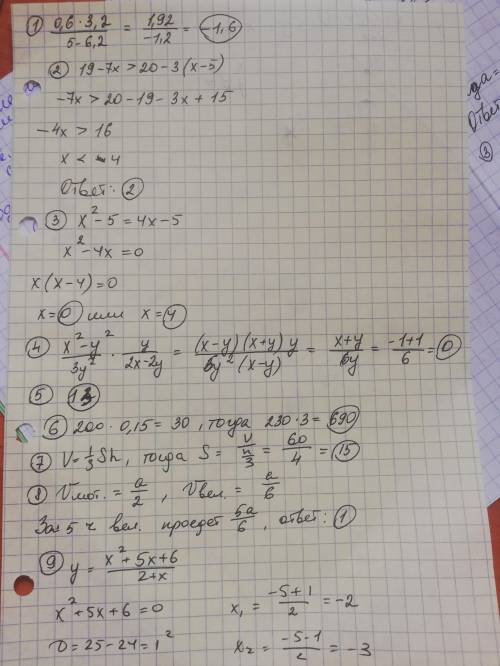 ① 0,6·3,2 / 5-6,2 = 1,92 / -1,2 = -1,6
② 19-7x > 20-3(x-5)
-7x > 20-19-3x+15
-4x > 16
x < -4
Ответ: ②
③ x²-5=4x-5
x²-4x=0
x(x-4)=0
x=0 или x=4
④ x²-y² / 3y² · y / 2x-2y = (x-y)(x+y)y / 6y²(x-y) = x+y / 6y = -1+1 / 6 = 0
⑤ 13
⑥ 200·0,15=30, тогда 230·3=690
⑦ V=1/3 Sh, тогда S= V / h/3 = 60/4 = 15
⑧ Vмот.= a/2, Vвел.= a/6
За 5 ч вел. проедет 5a/6, ответ: ①
⑨ y = x²+5x+6 / 2+x
x²+5x+6=0 x₁ = -5+1 / 2 = -2
D=25-24=1² x₂ = -5-1 / 2 = -3
да=
Ответ
③